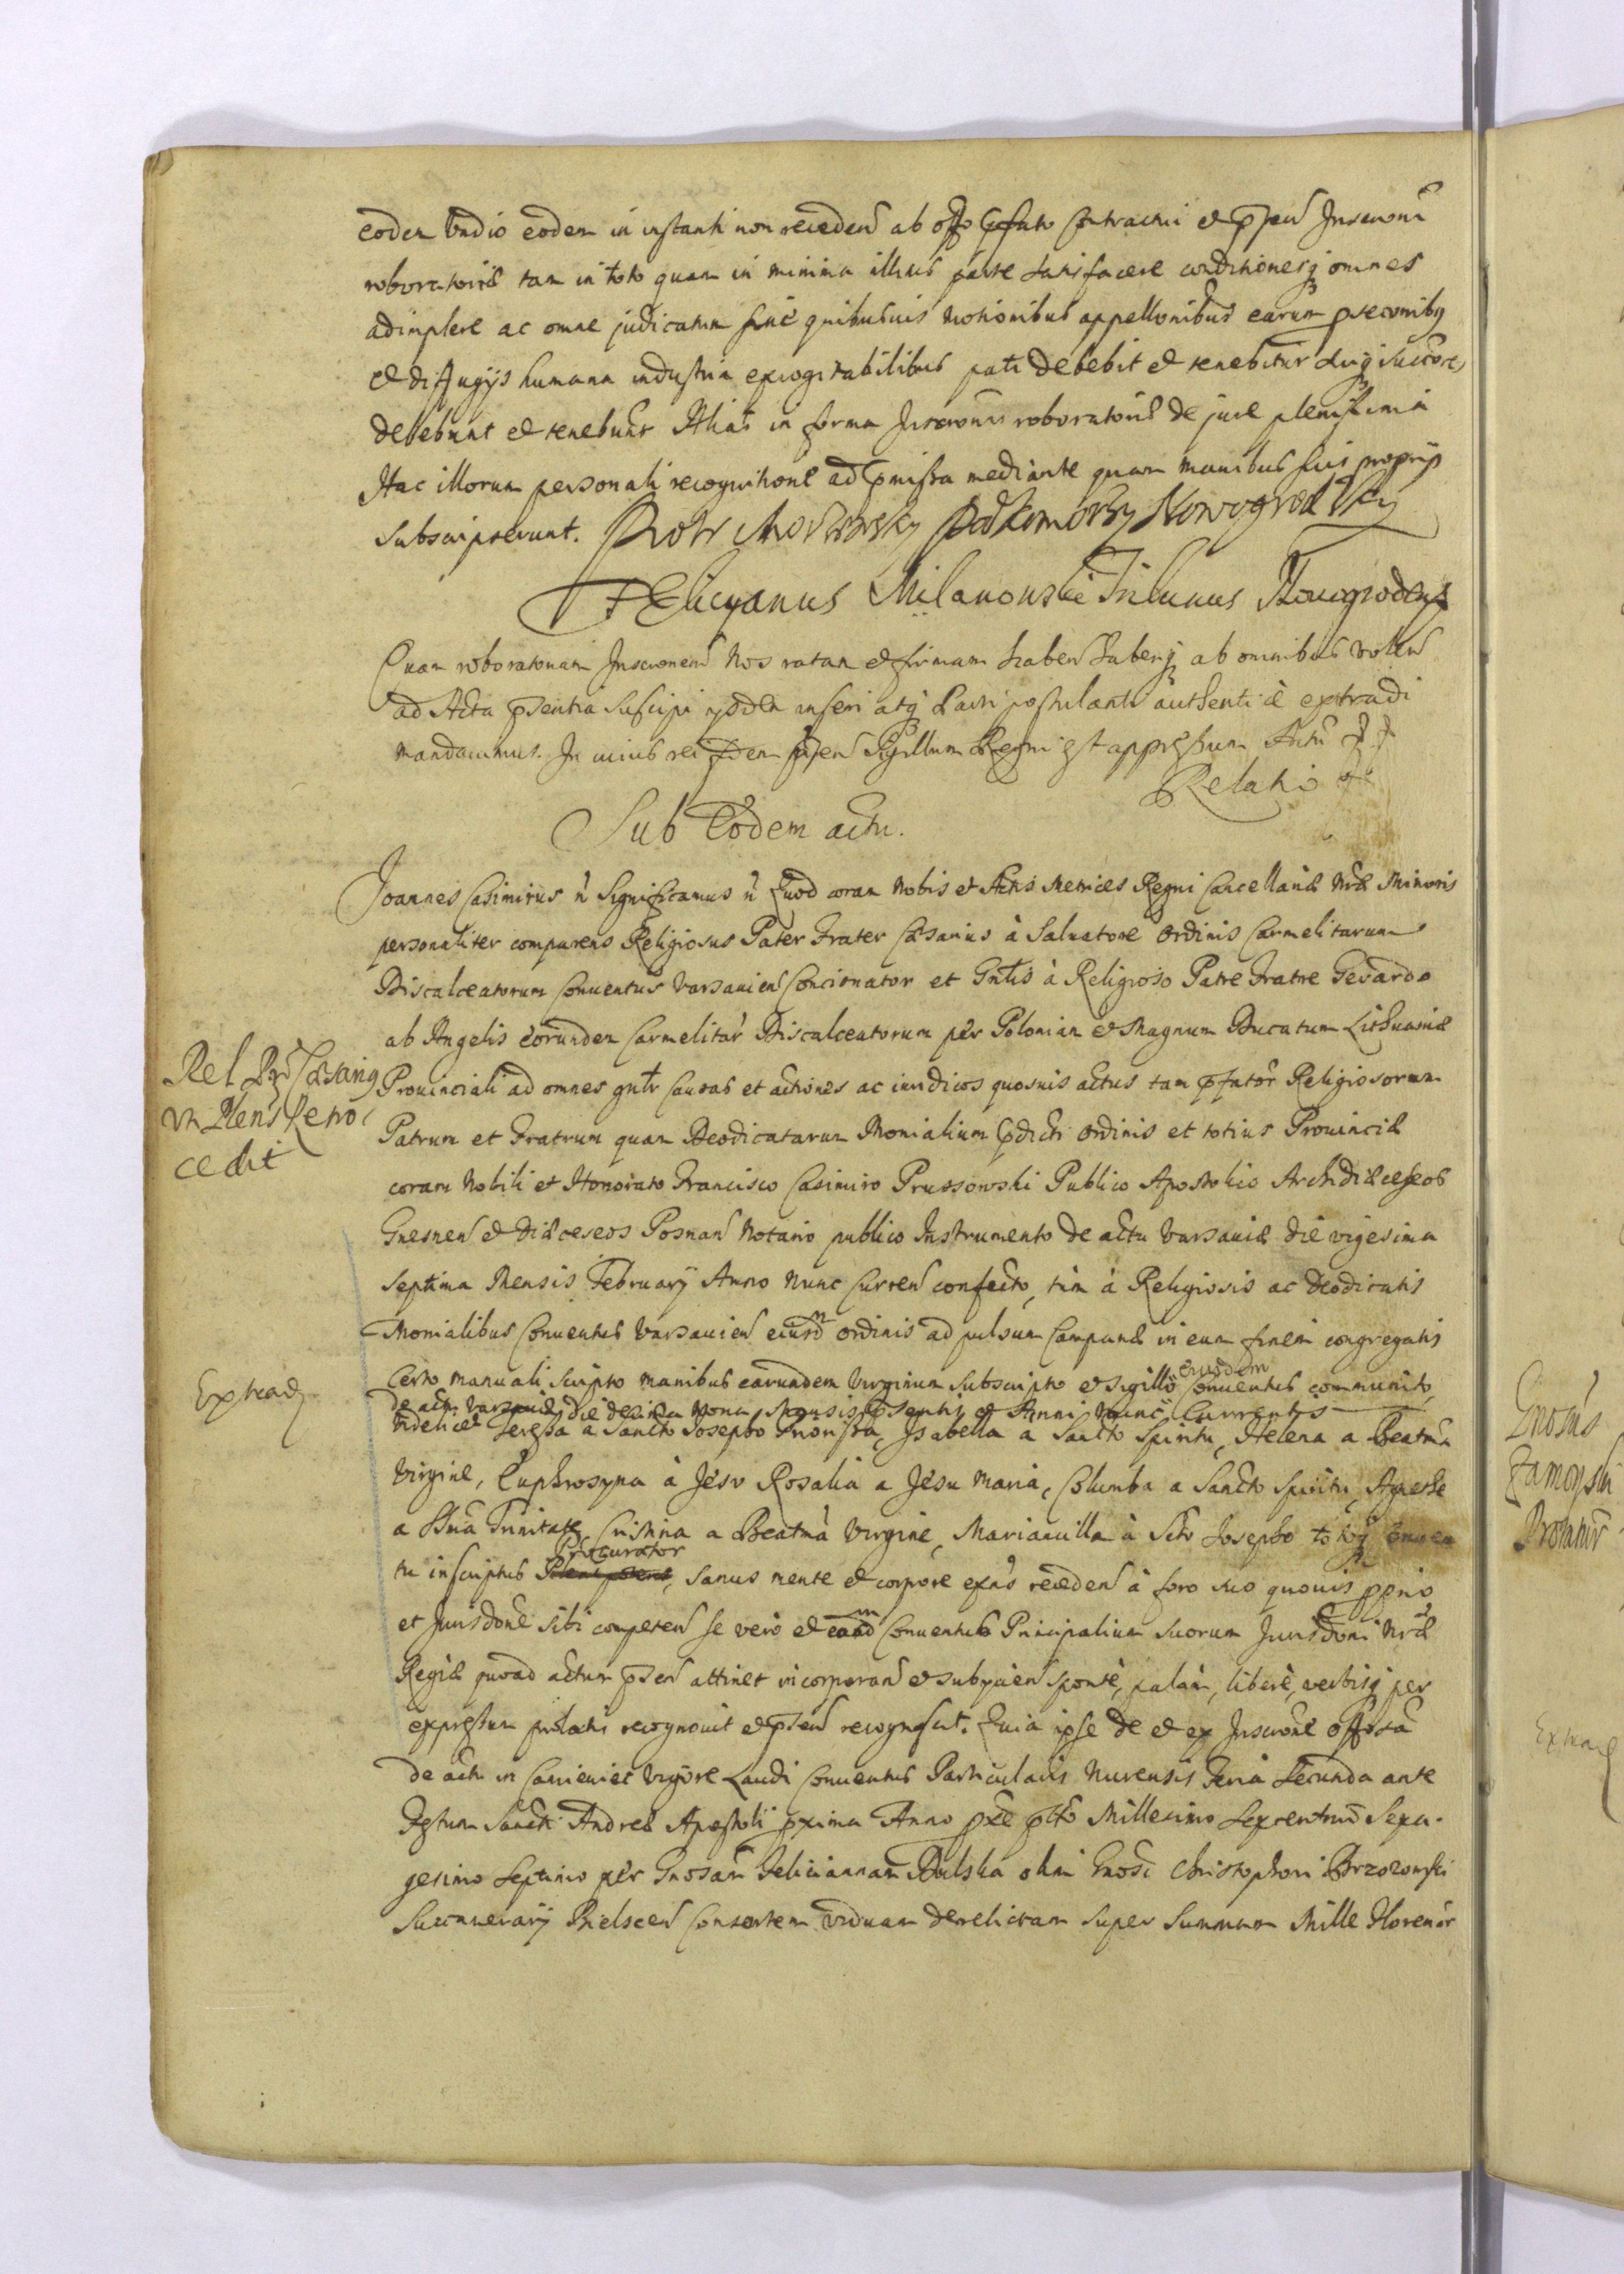 eodem vadio eodem in instanti non recedens ab offo pfato contractui et pnsenti Inscrioni
roboratoriæ tam in toto quam in minima illius parte satisfacere conditionesq omnes
adimplere ac omne judicatum sine quibusuis motionibus appellonibus earum psecunibq
et diffugijs humana industria excogitabilibus pati debebit et tenebitur suiq succores
debebunt et tenebuntr Alias in forma Inscronis roboratoriæ de jure plenissima
Hac illorum personali recognitione ad pmissa mediante quam manibus suis proprijs
subscripserunt. Piotr Podkomorzy Nowogrodsky
FElicyanus Milanouski Tribunus Nouogrodens
Quam roboratoriam Inscronem Nos ratam et firmam haben haberiq ab omnibus volen
ad Acta psentia suscipi ijsdem inseri atq Parti postulanti authentice extradi
mandauimus. In cuius rei fidem psen Sigillum Regni est appressum Actu
Relatio
Sub Eodem actu.
Joannes Casimirus Significamus Quod coram Nobis et Actis Metrices Regni Cancellariæ Nræ Minoris
personaliter comparens Religiosus Pater Frater Cæsarius à Saluatore Ordinis Carmelitarum
Discalceatorum Conuentus Varsauien Concionator et Gntis à Religioso Patre Fratre Gerardo
ab Angelis eorundem Carmelitar Discalceatorum per Poloniam et Magnum Ducatum Lithuaniæ
Rel Cæsariq
Prouinciali ad omnes gntr Causas et actiones ac iuridicos quosuis actus tam pfator Religiosorum
Patrum et Fratrum quam Deodicatarum Monialium pdicti Ordinis et totius Prouinciæ
cedit
coram Nobili et Honorato Francisco Casimiro Prussowski Publico Apostolico Archidiæceseos
Gnesnen et Diæceseos Posnan Notario publico Instrumento de actu Varsauiæ die vigesima
septima Mensis February Anno Nunc Curren confecto, tum à Religiosis ac Deodicatis
Monialibus Conuentus Varsauien eiusdm Ordinis ad pulsum Campanæ in eum finem congregatis
Extrad
Certo manuali scripto manibus earundem Virginum subscripto et sigillo eiusdem Conuentus communito,
de actu Varsauiæ die decima Nona Mensis psentis et Anni Nunc Currentis
videlicet Teressa a Sancto Josepho Priorissa, Isabella a Sancto Spiritu, Helena a Beatma
Virgine, Euphrosyna à Jesu Rosalia a Jesu Maria, Columba a Sancto Spiritu, Agnethe
a Sma Trinitate, Cristina a Beatma Virgine, Marianilla à Scto Josepho totoq Conuen
tu inscriptus Plenipotens Procurator, sanus mente et corpore exns receden à foro suo quouis pprio
et Jurisdone sibi competen se vero et eand m Conuentus Principalium suorum Jurisdoni Nræ
Regiæ quoad actum psen attinet incorporan et subijcien sponte, palam, libere, verbisq per
expressum prolatis recognouit et psen recognoscit. Quia ipse de et ex Inscrone
de actu in Camieniec vigore Laudi Conuentus Particularis Nurensis Feria Secunda ante
Festum Sancti Andreæ Apostoli pxima Anno pxe pto Millesimo Sexcentmo Sexa-
gesimo Septimo per Gnosam Feliciannam Bulska olim Gnosi Christophori Brzozowski
Succamerarij Bielscen Consortem viduam derelictam super Summam Mille Florenor
Gnosus
Zamoyski
Extrad